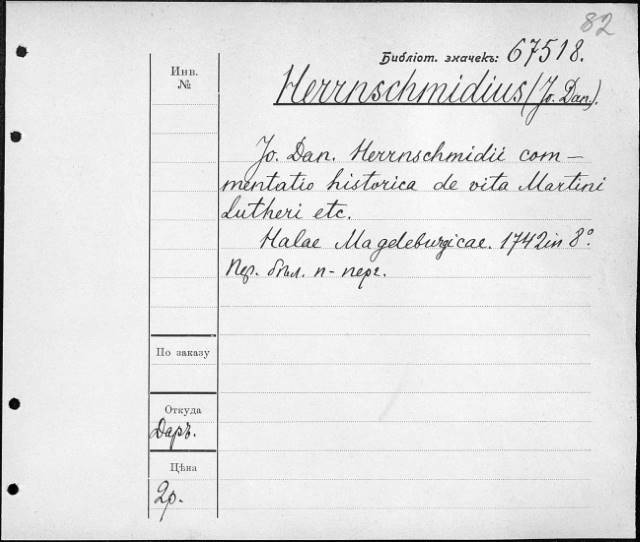 82
Библіот. значекъ: 67518.
Инв.
№
Herrnschmidius (Jo. Dan.).
Jo. Dan. Herrnschmidii com—
mentatio historica de vita Martini
Lutheri etc.
Halae Magdeburgicae. 1742 in 8°.
Пер. бѣл. п-перг.
По заказу
Откуда
Даръ.
Цѣна
2р.